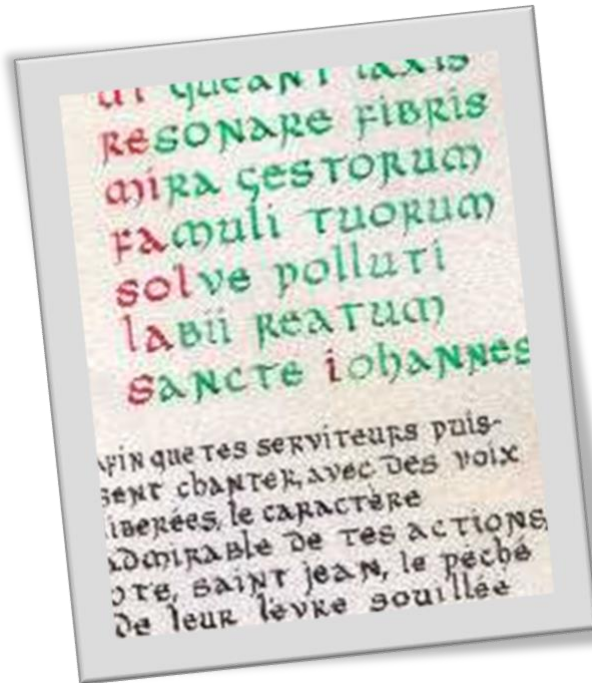 ut queant laxis
resonare fibris
mira gestorum
famuli tuorum
solve polluti
labii reatum
sancte iohannes
afin que tes serviteurs puis-
sent chanter, avec des voix
liberées, le caractère
admirable de tes actions,
ote, saint jean, le peché
de leur lèvre souillée